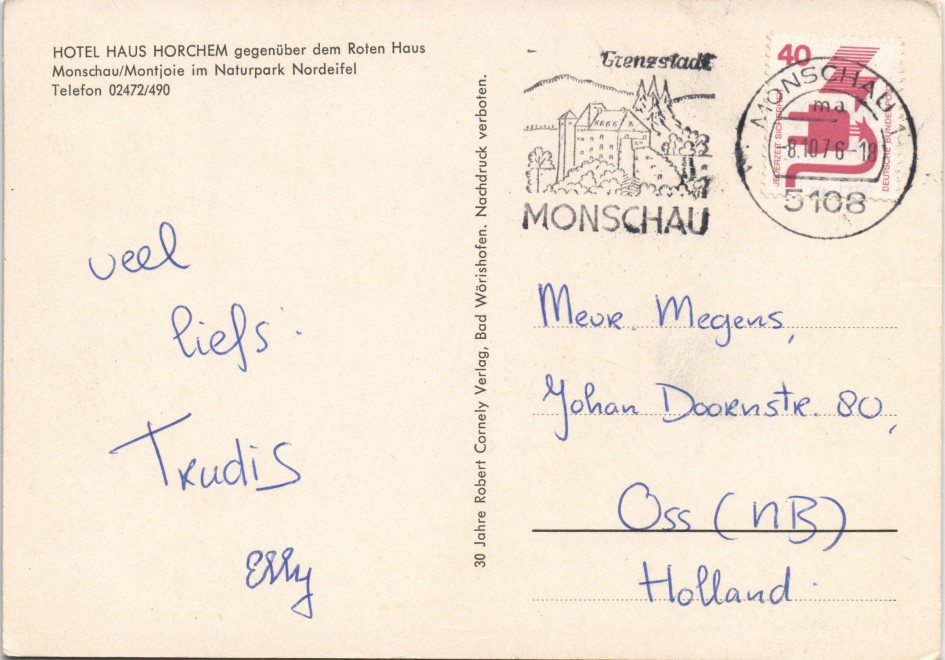 HOTEL HAUS HORCHEM gegenüber dem Roten Haus
Monschau/Montjoie im Naturpark Nordeifel
Telefon 02472/490
veel
liefs.
Trudis
Elly
30 Jahre Robert Cornely Verlag, Bad Wörishofen. Nachdruck verboten.
Grenzstadt
MONSCHAU
40
JEDERZEIT SICHERHEIT
DEUTSCHE BUNDESPOST
MONSCHAU 1
ma
-8.10.76-18
5108
Mevr. Megens,
Johan Doornstr. 80,
Oss (NB)
Holland.